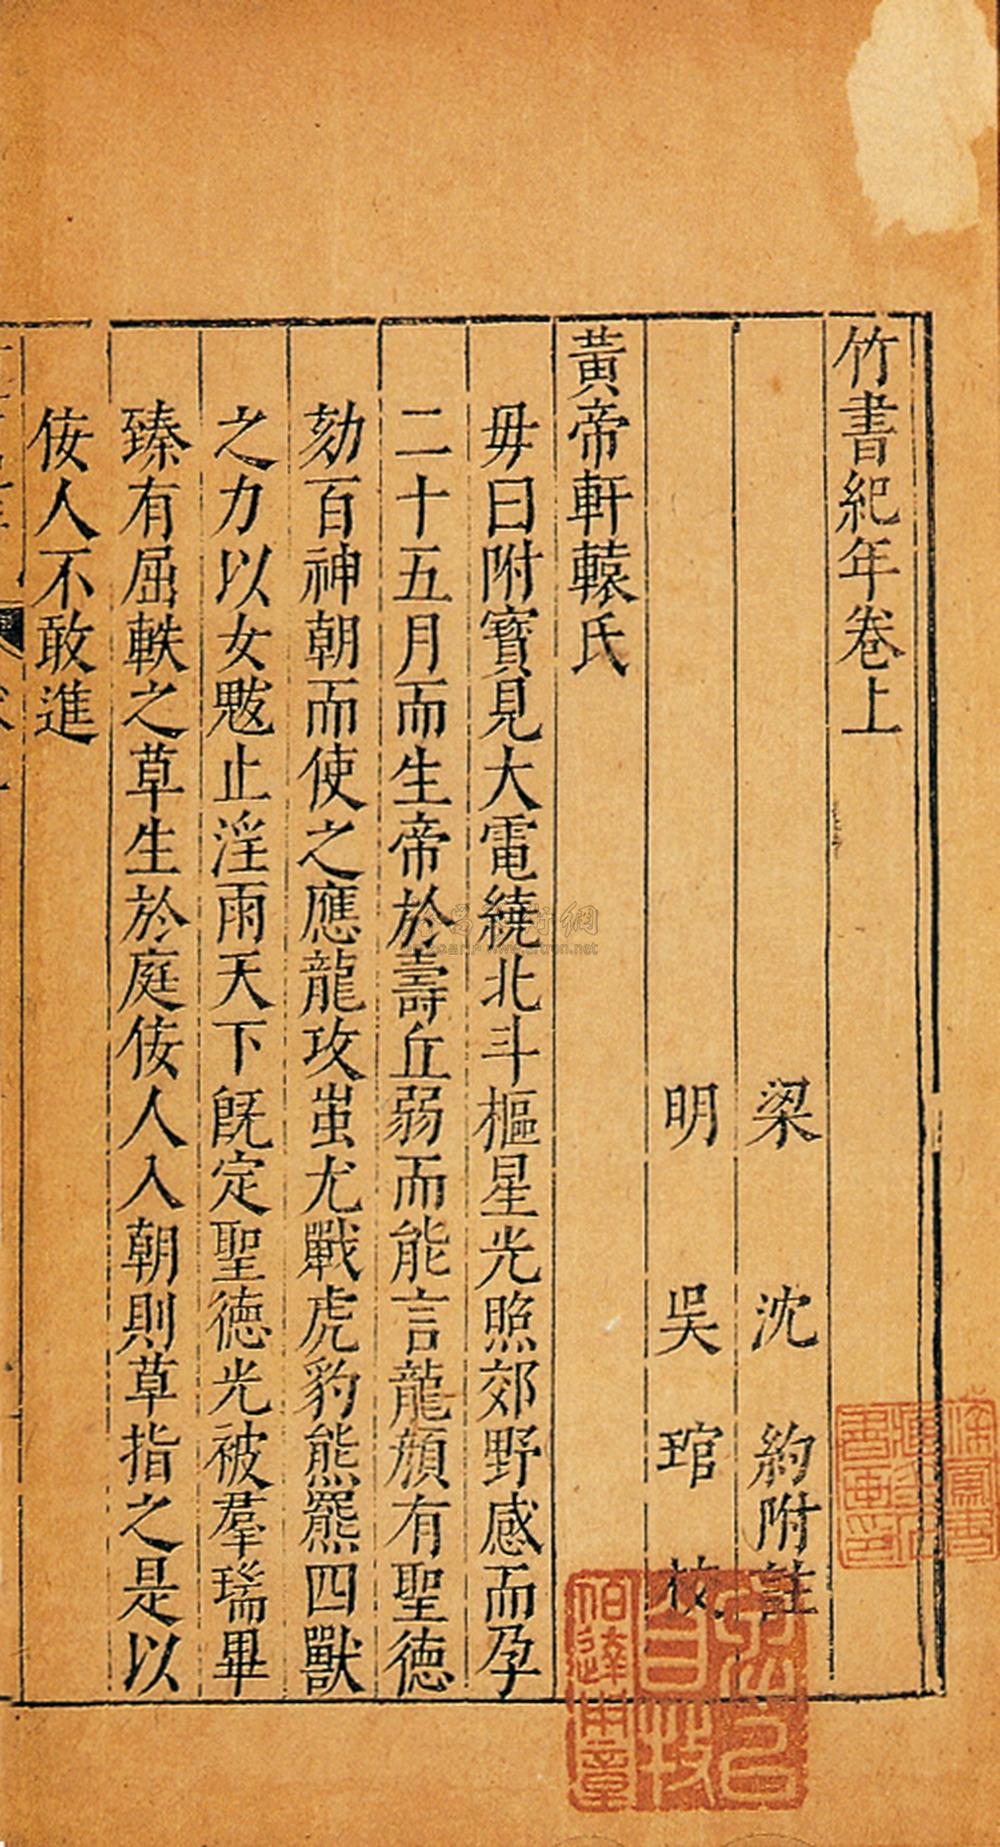 竹書紀年卷上
梁 沈 約附註
明 吳 琯 校
黃帝軒轅氏
毋曰附寶見大電繞北斗樞星光照郊野感而孕
二十五月而生帝於壽丘弱而能言龍顏有聖德
劾百神朝而使之應龍攻蚩尤戰虎豹熊羆四獸
之力以女魃止淫雨天下旣定聖德光被羣瑞畢
臻有屈軼之草生於庭佞人入朝則草指之是以
佞人不敢進